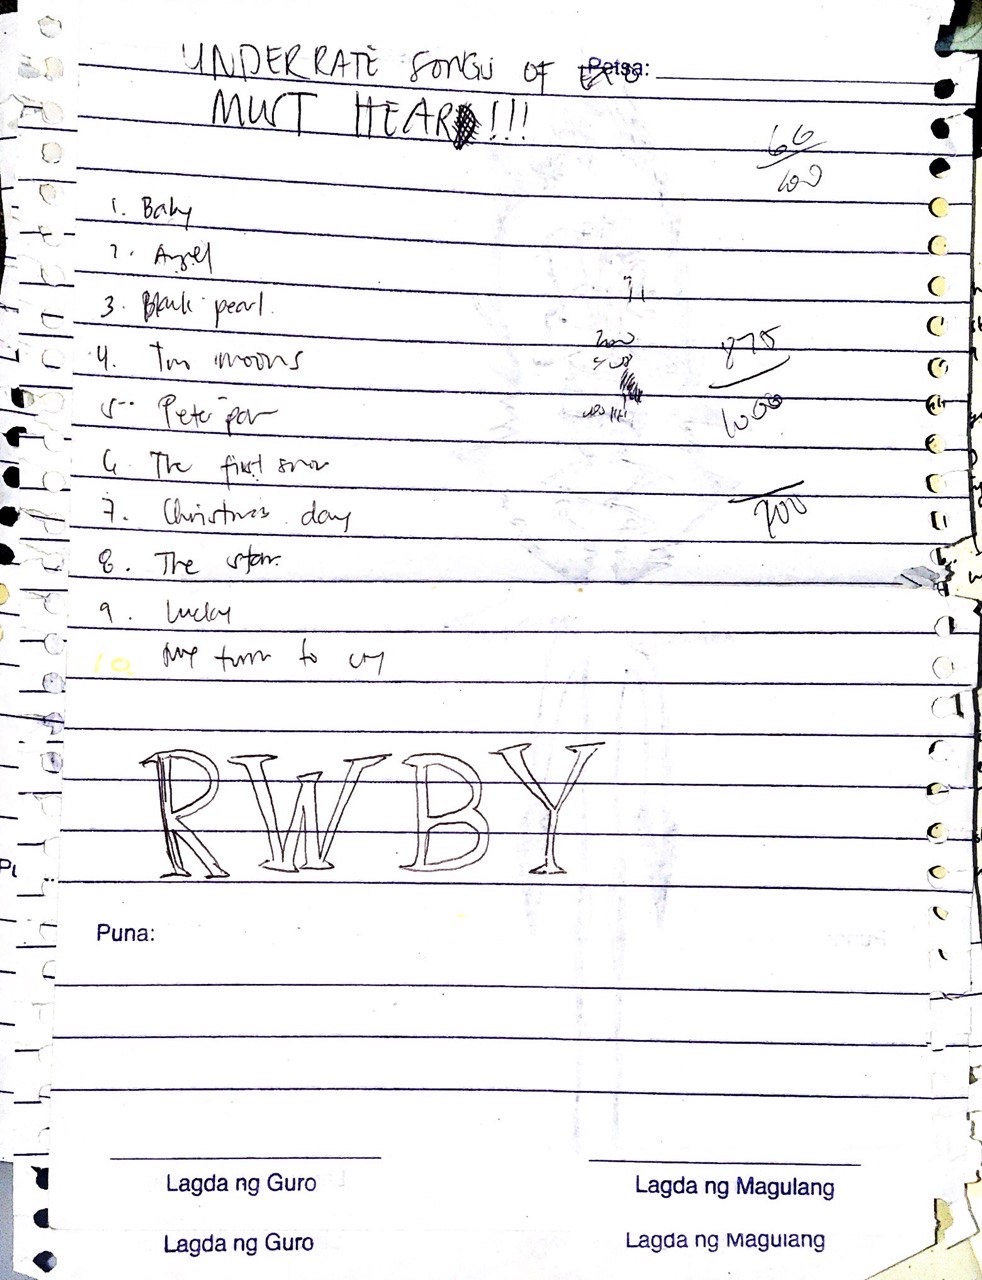 UNDERRATE SONGS OF EXO Petsa:
MUST HEAR!!!
66
100
1. Baby
2. Angel
3. Black pearl.
11
4. Two moons
875
1000
5. Peter pan
6. The first snow
7. Christmas day
200
8. The star.
9. Lucky
10 My turn to cry
RWBY
Puna:
Lagda ng Guro Lagda ng Magulang
Lagda ng Guro Lagda ng Magulang